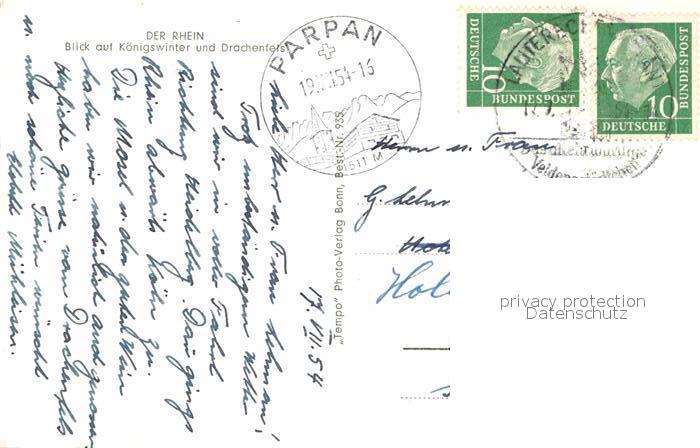 DER RHEIN
Blick auf Königswinter und Drachenfels
PARPAN
1511 M
DEUTSCHE
BUNDESPOST
10
DEUTSCHE
BUNDESPOST
10
"Tempo" Photo-Verlag Bonn, Best.-Nr. 935
17. VII. 54
Herr u. Frau Lehmann!
Trotz unbeständigem Wetter
sind wir in voller Fahrt
Richtung Heidelberg.
Rhein abwärts Köln zu.
Die Mosel u. den guten Wein
haben wir natürlich auch genossen
Herzliche Grüsse vom Drachenfels
u. noch schöne Ferien wünscht
Herrn u. Frau
G. Lehm
Hot
privacy protection
Datenschutz